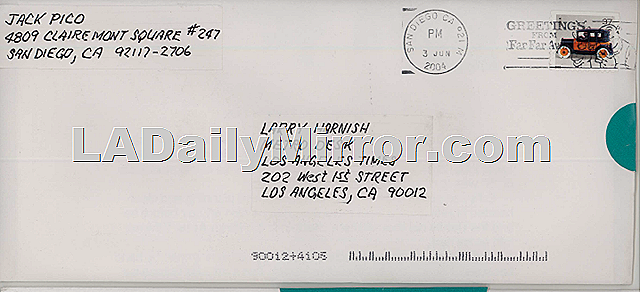 JACK PICO
4809 CLAIREMONT SQUARE #247
SAN DIEGO, CA 92117-2706
SAN DIEGO CA 921
PM
3 JUN
2004
GREETINGS
FROM
Far Far
37
LARRY HARNISH
METRO DESK
LADailyMirror.com
LOS ANGELES TIMES
202 West 1st STREET
LOS ANGELES, CA 90012
90012+4105